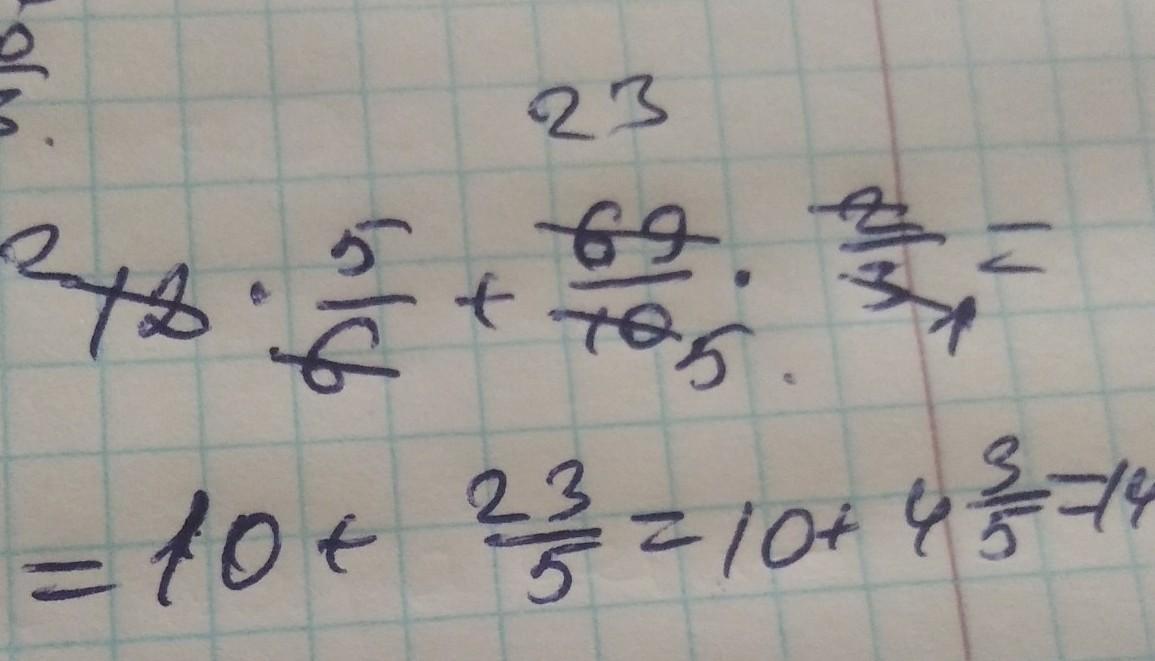 23
2 12 · 5/6 + 69/10 5 · 2/3 1 =
= 10 + 23/5 = 10 + 4 3/5 = 14